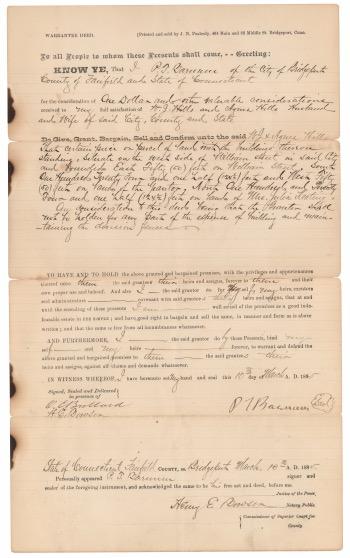 WARRANTEE DEED. [Printed and sold by J. N. Peabody, 404 Main and 80 Middle St. Bridgeport, Conn.
To all People to whom these Presents shall come, - - Greeting:
KNOW YE, That I P. T. Barnum of the City of Bridgeport
County of Fairfield and State of Connecticut
for the consideration of One Dollar and other valuable considerations
received to my full satisfaction of W. J. Hills and Hills Husband
and Wife of said City, County and State
Do Give, Grant, Bargain, Sell and Confirm unto the said W. J. & Hills
that certain piece or parcel of land with the buildings thereon
standing, situate on the west side of Hallam Street in said City
and bounded East Fifty (50) feet on Hallam Street, South
One Hundred Twenty Four and one half (124½) feet and West Fifty
(50) feet on lands of the Grantor, North One Hundred and Twenty
Four and one half (124½) feet on lands of
consideration of this deed
not be holden for any part of the expense of building and main-
taining the division fences
TO HAVE AND TO HOLD the above granted and bargained premises, with the privileges and appurtenances
thereof unto them the said grantees their heirs and assigns, forever to them and their
own proper use and behoof. And also I the said grantor do for my heirs, executors
and administrators covenant with said grantees their heirs and assigns, that at and
until the ensealing of these presents I am well seized of the premises as a good inde-
feasible estate in fee simple; and have good right to bargain and sell the same, in manner and form as is above
written; and that the same is free from all incumbrances whatsoever.
AND FURTHERMORE, I the said grantor do by these Presents, bind my
self and my heirs forever, to warrant and defend the
above granted and bargained premises to them the said grantees their
heirs and assigns, against all claims and demands whatsoever.
IN WITNESS WHEREOF, I have hereunto set my hand and seal this 10th day of March A. D. 188
Signed, Sealed and Delivered
in presence of
P. T. Barnum Seal
State of Connecticut, Fairfield COUNTY, ss. Bridgeport March 10th A. D. 188
Personally appeared P. T. Barnum signer and
sealer of the foregoing instrument, and acknowledged the same to be his free act and deed, before me.
Justice of the Peace,
Henry E. Notary Public
Commissioner of Superior Court for
County.